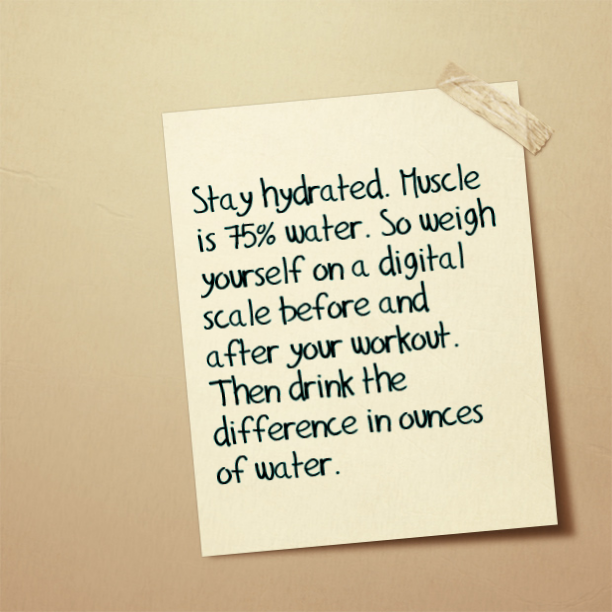 Stay hydrated. Muscle
is 75% water. So weigh
yourself on a digital
scale before and
after your workout.
Then drink the
difference in ounces
of water.